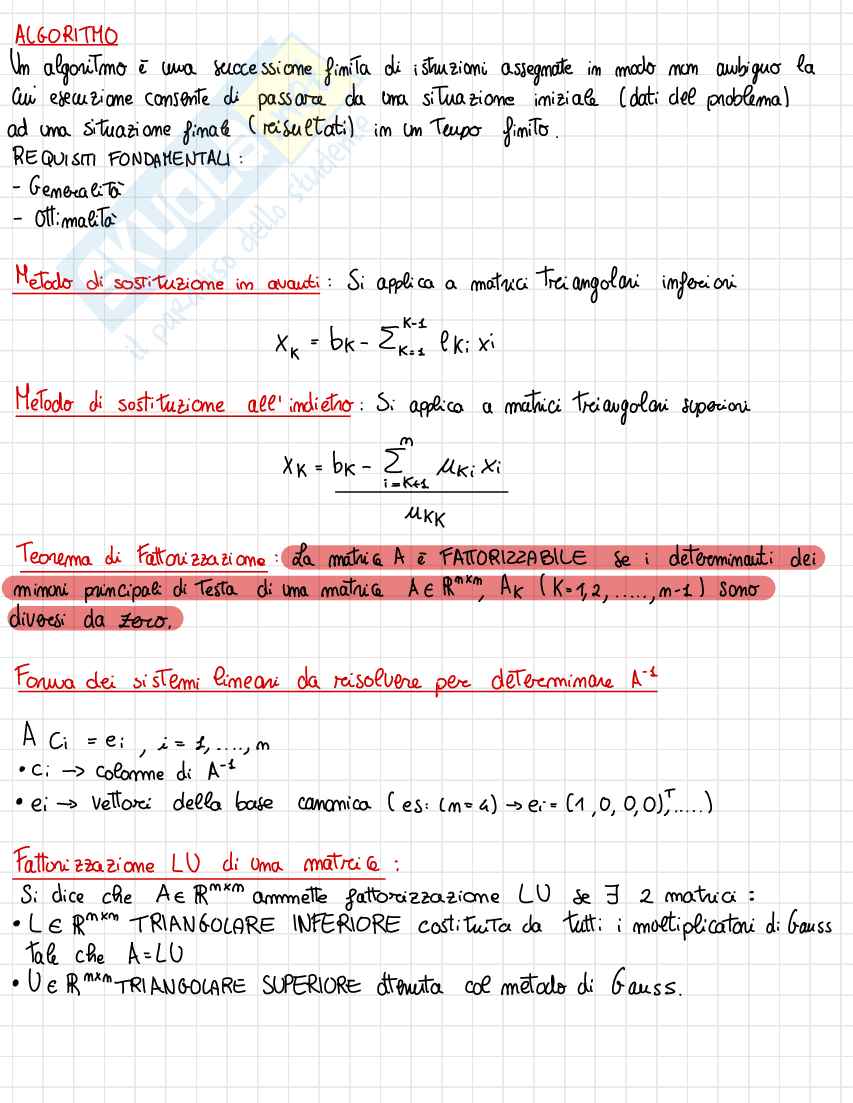 ALGORITMO
Un algoritmo è una successione finita di istruzioni assegnate in modo non ambiguo la
cui esecuzione consente di passare da una situazione iniziale (dati del problema)
ad una situazione finale (risultati) in un tempo finito.
REQUISITI FONDAMENTALI:
- Generalità
- Ottimalità
Metodo di sostituzione in avanti: Si applica a matrici triangolari inferiori
x_K = b_K - Σ_{K=1}^{K-1} l_{Ki} x_i
Metodo di sostituzione all'indietro: Si applica a matrici triangolari superiori
x_K = b_K - Σ_{i=K+1}^{n} μ_{Ki} x_i
μ_{KK}
Teorema di Fattorizzazione: La matrice A è FATTORIZZABILE se i determinanti dei
minori principali di testa di una matrice A ∈ ℝ^{n×n}, A_K (K=1,2,.....,n-1) sono
diversi da zero.
Forma dei sistemi lineari da risolvere per determinare A^{-1}
A c_i = e_i , i = 1,....,n
• c_i → colonne di A^{-1}
• e_i → vettori della base canonica (es: (n=4) → e_i = (1,0,0,0)^T,.....)
Fattorizzazione LU di una matrice:
Si dice che A ∈ ℝ^{n×n} ammette fattorizzazione LU se ∃ 2 matrici:
• L ∈ ℝ^{n×n} TRIANGOLARE INFERIORE costituita da tutti i moltiplicatori di Gauss
tale che A=LU
• U ∈ ℝ^{n×n} TRIANGOLARE SUPERIORE ottenuta col metodo di Gauss.
SKUOLA.net
il paradiso dello studente